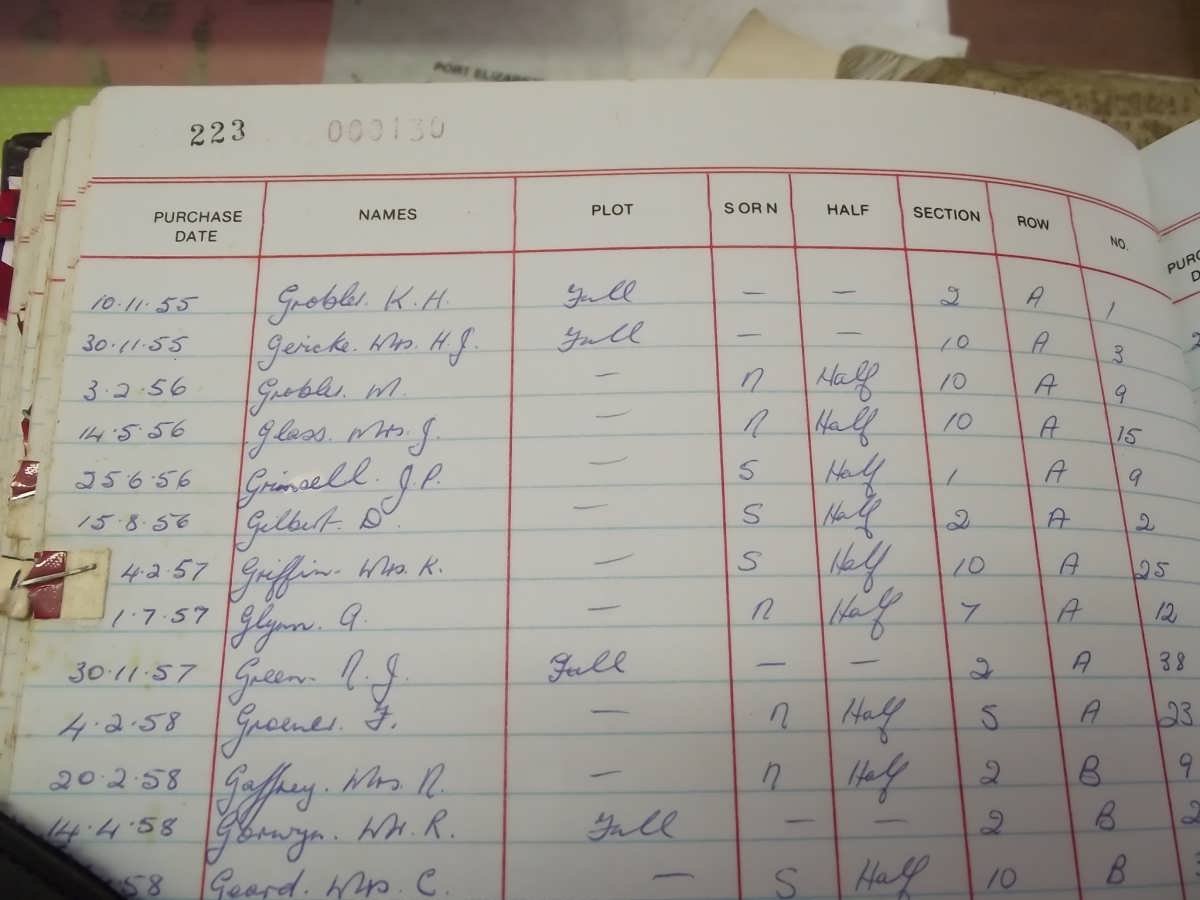 PORT ELIZABE
223 000130
PURCHASE DATE NAMES PLOT S OR N HALF SECTION ROW NO. PURC D
10.11.55 Grobler. K. H. Full — — 2 A 1
30.11.55 Gericke. Mrs. H.J. Full — — 10 A 3 2
3.2.56 Grobler. M. — N Half 10 A 9
14.5.56 Glass. Mrs. J. — N Half 10 A 15
25.6.56 Grimsell. J.P. — S Half 1 A 9
15.8.56 Gilbert. D. — S Half 2 A 2
4.2.57 Griffin. Mrs. K. — S Half 10 A 25
1.7.57 Glynn. A. — N Half 7 A 12
30.11.57 Green. N. J. Full — — 2 A 38
4.2.58 Groener. F. — N Half 5 A 23
20.2.58 Gaffney. Mrs. N. — N Half 2 B 9
14.4.58 Mr. R. Full — — 2 B 2
58 Geard. Mrs. C. — S Half 10 B